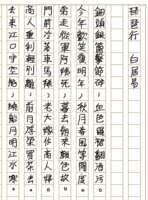 琵琶行 白居易
鈿頭銀篦擊節碎,血色羅裙翻酒污。
今年歡笑復明年,秋月春風等閒度。
弟走從軍阿姨死,暮去朝來顏色故。
門前冷落車馬稀,老大嫁作商人婦。
商人重利輕別離,前月浮梁買茶去。
去來江口守空船,繞船月明江水寒。